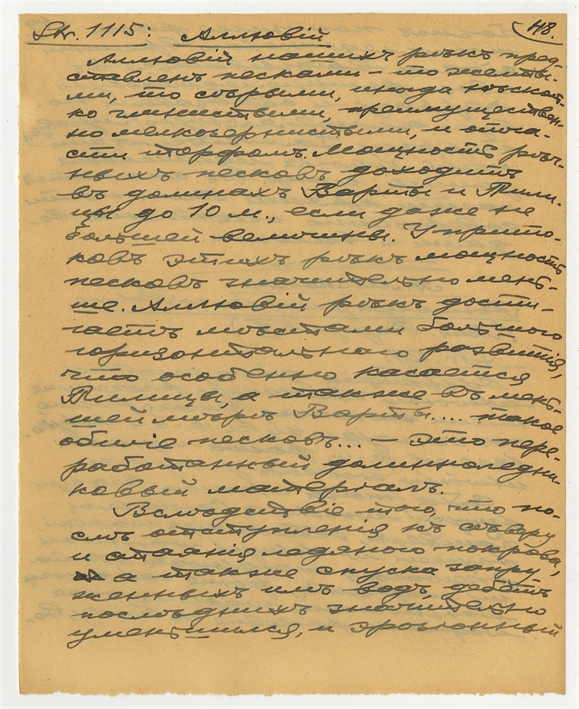 Str. 1115: Аллювій 48.
Аллювій нашихъ рѣкъ пред-
ставленъ песками – то желты-
ми, то сѣрыми, иногда нѣсколь-
ко глинистыми, преимуществен-
но мелкозернистыми, и отча-
сти торфомъ. Мощность рѣч-
ныхъ песковъ доходитъ
въ долинахъ Варты и Пили-
цы до 10 м., если даже не
большей величины. У прито-
ковъ этихъ рѣкъ мощность
песковъ значительно мень-
ше. Аллювій рѣкъ дости-
гаетъ мѣстами большого
горизонтальнаго развитія,
что особенно касается
Пилицы, а также въ мень-
шей мѣрѣ Варты.... такое
обиліе песковъ... – это пере-
работанный долинноледни-
ковый матеріалъ.
Вслѣдствіе того, что по-
слѣ отступленія къ сѣверу
и стаянія ледяного покрова,
а также спуска запру-
женныхъ имъ водъ, дебитъ
послѣднихъ значительно
уменьшился, и эрозіонный